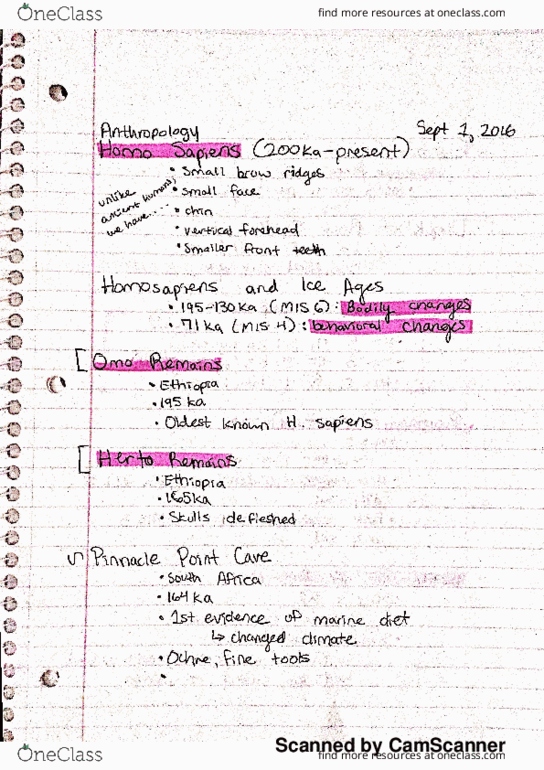 OneClass
find more resources at oneclass.com
Anthropology
Sept 1, 2016
Homo Sapiens (200ka-present)
• Small brow ridges
unlike ancient humans, we have....
• Small face
• chin
• vertical forehead
• Smaller front teeth
Homosapiens and Ice Ages
• 195-130ka (MIS 6): Bodily changes
• 71ka (MIS 4): behavioral changes
Omo Remains
• Ethiopia
• 195 ka
• Oldest known H. sapiens
Herto Remains
• Ethiopia
• 165ka
• Skulls defleshed
Pinnacle Point Cave
• South Africa
• 164 ka
• 1st evidence of marine diet
↳ changed climate
• Ochre, fine tools
•
Scanned by CamScanner
OneClass
find more resources at oneclass.com